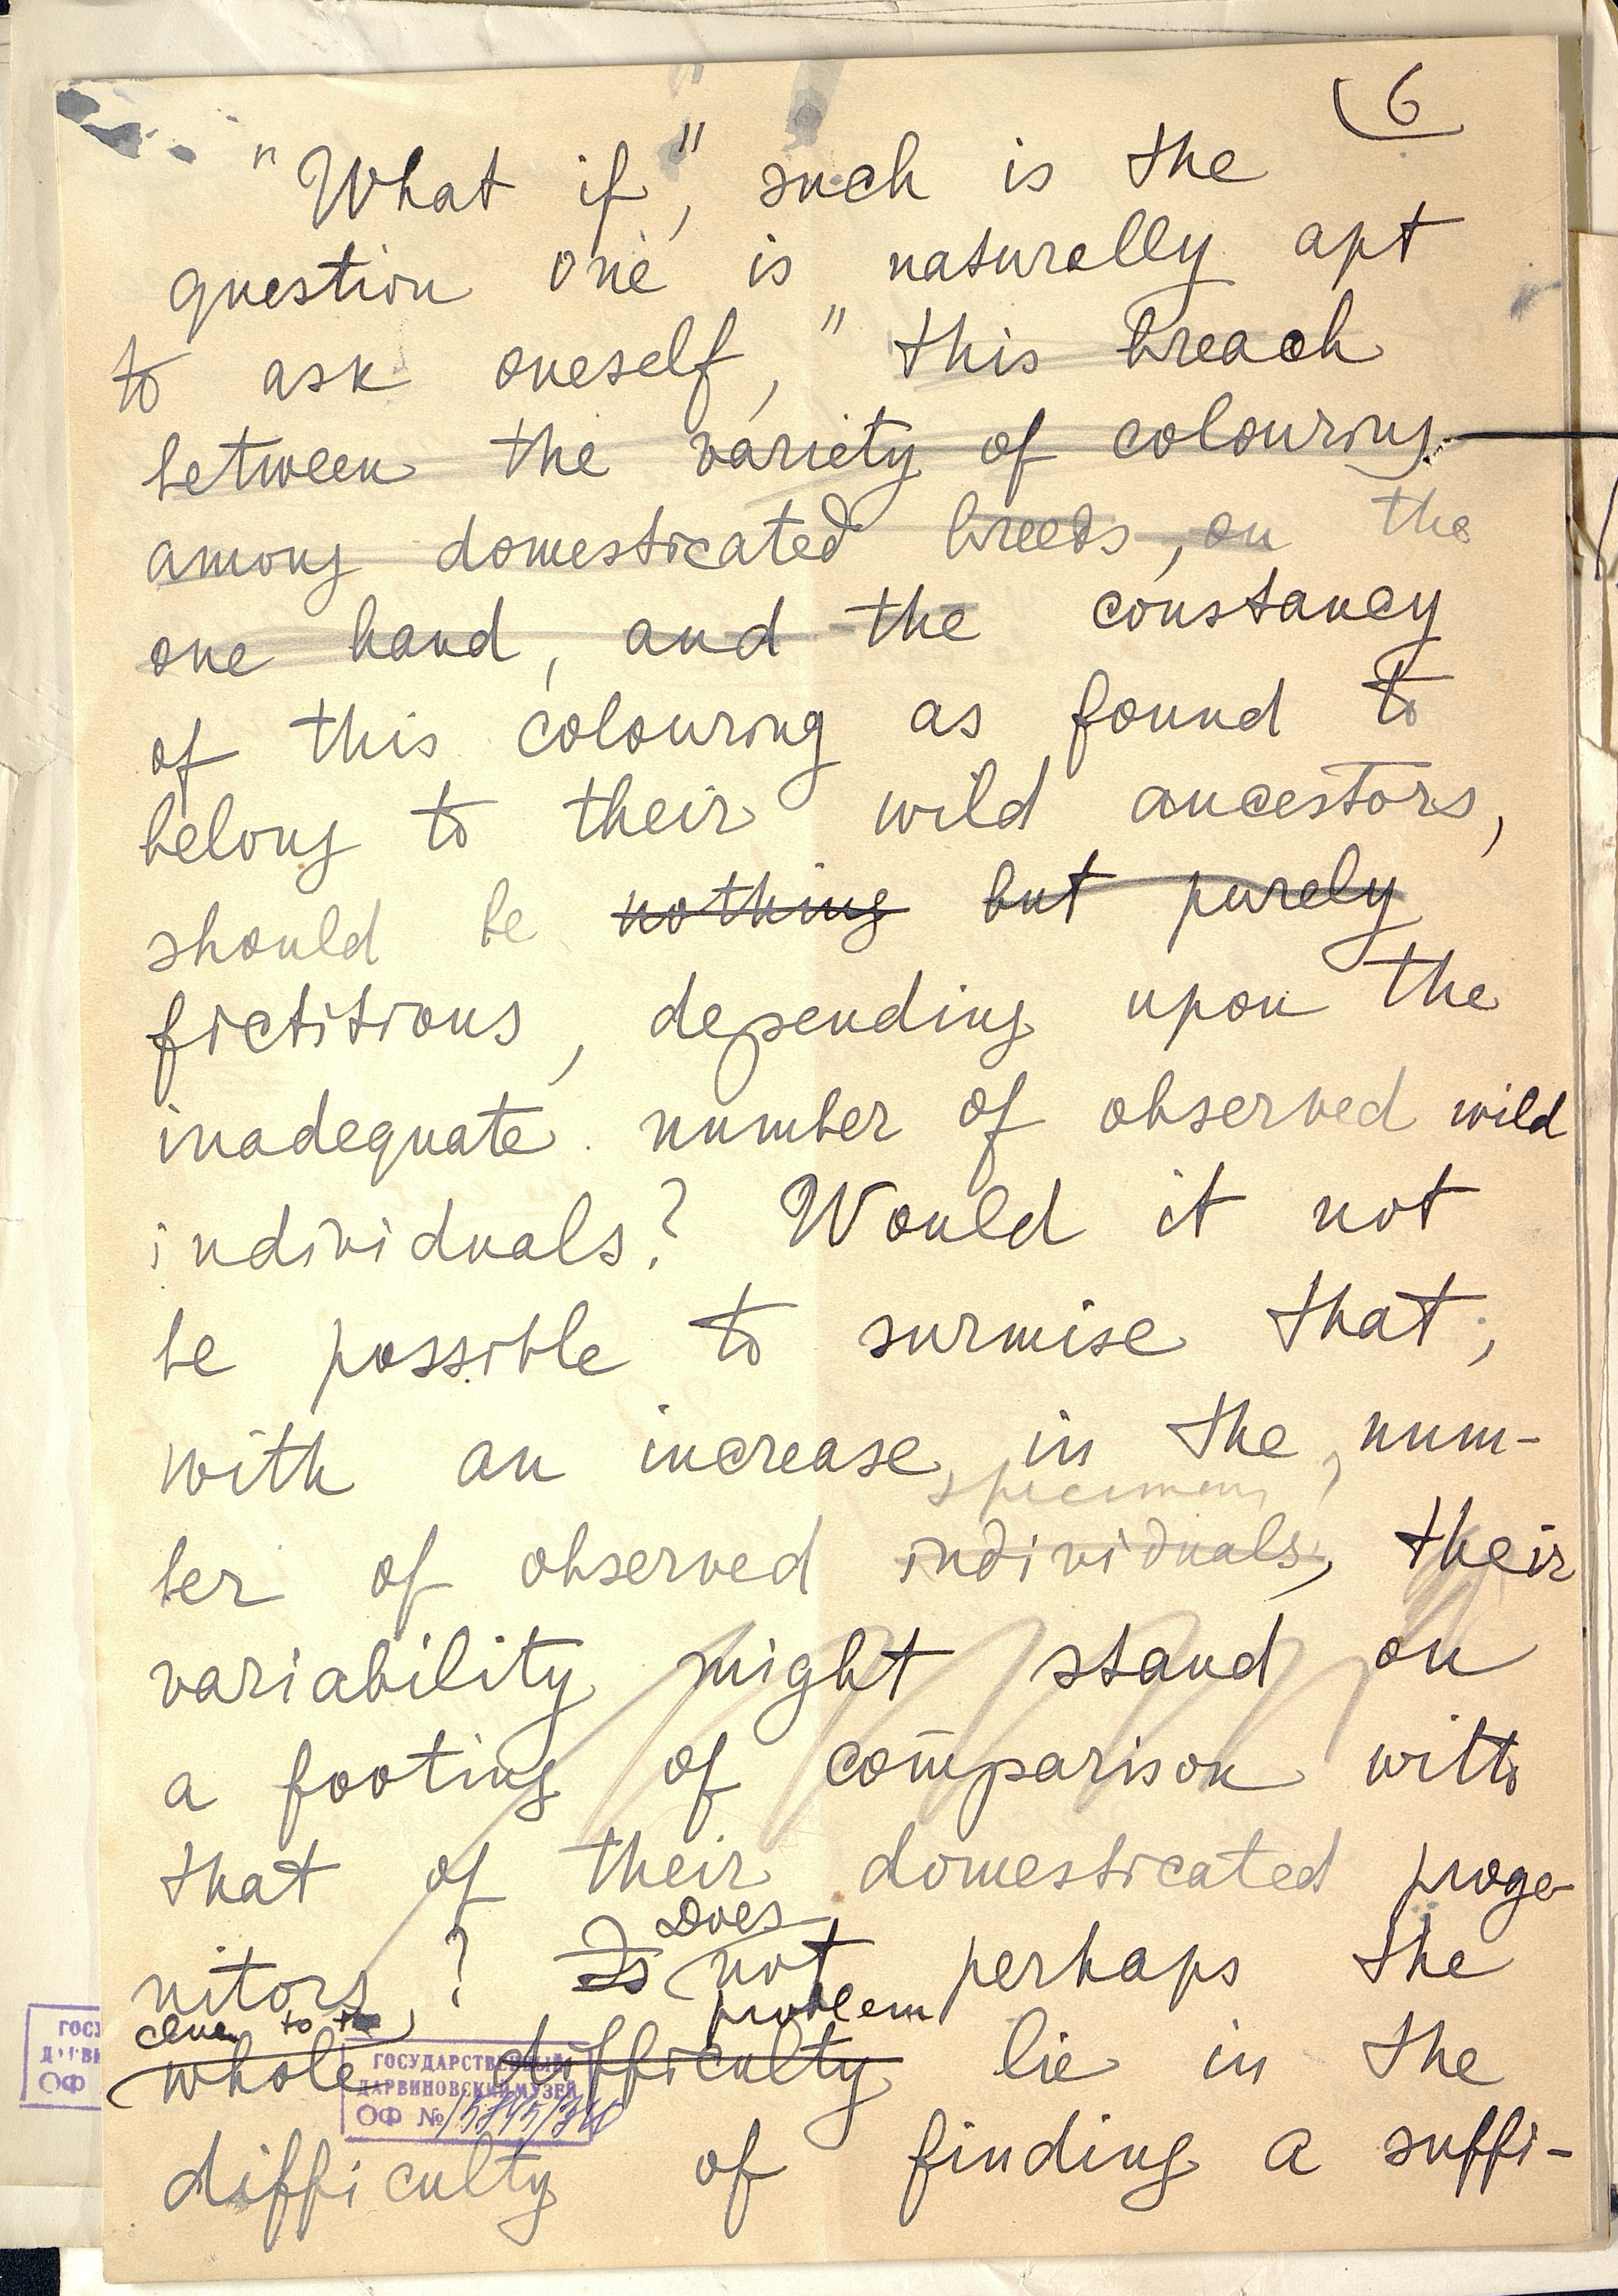 6
"What if," such is the
question one is naturally apt
to ask oneself, "this breach
between the variety of colouring
among domesticated breeds, on the
one hand, and the constancy
of this colouring as found to
belong to their wild ancestors,
should be nothing but purely
fictitious, depending upon the
inadequate number of observed wild
individuals? Would it not
be possible to surmise that,
with an increase in the num-
specimens
ber of observed individuals, their
variability might stand on
a footing of comparison with
that of their domesticated proge-
Does
nitors? Is not perhaps the
clue to the problem
whole difficulty lie in the
ГОСУДАРСТВЕННЫЙ
ДАРВИНОВСКИЙ МУЗЕЙ
ОФ №
difficulty of finding a suffi-